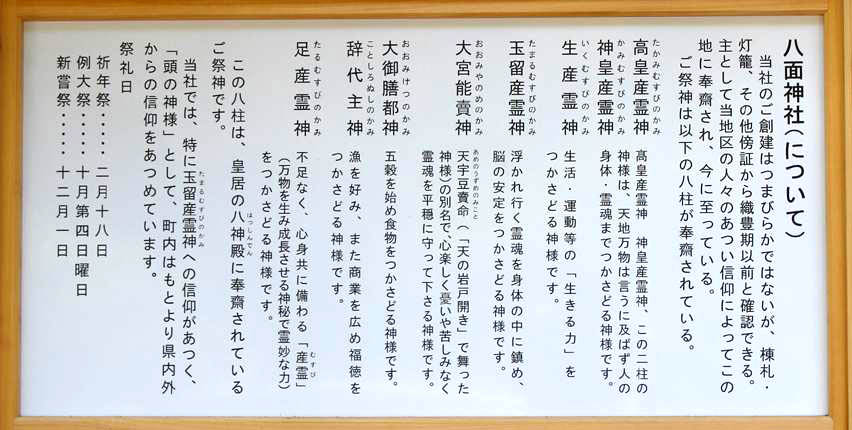 八面神社(について)
当社のご創建はつまびらかではないが、棟札・
灯籠、その他傍証から織豊期以前と確認できる。
主として当地区の人々のあつい信仰によってこの
地に奉齋され、今に至っている。
ご祭神は以下の八柱が奉齋されている。
たかみむすびのかみ
高皇産霊神
髙皇産霊神 神皇産霊神、この二柱の
かみむすびのかみ
神皇産霊神
神様は、天地万物は言うに及ばず人の
身体・霊魂までつかさどる神様です。
いくむすびのかみ
生産霊神
生活・運動等の「生きる力」を
つかさどる神様です。
たまるむすびのかみ
玉留産霊神
浮かれ行く霊魂を身体の中に鎮め、
脳の安定をつかさどる神様です。
おおみやのめのかみ
大宮能賣神
あめのうずめのみこと
天宇豆賣命(「天の岩戸開き」で舞った
神様)の別名で、心楽しく憂いや苦しみなく
霊魂を平穏に守って下さる神様です。
おおみけつのかみ
大御膳都神
五穀を始め食物をつかさどる神様です。
ことしろぬしのかみ
辞代主神
漁を好み、また商業を広め福徳を
つかさどる神様です。
たるむすびのかみ
足産霊神
不足なく、心身共に備わる「産霊」
むすび
(万物を生み成長させる神秘で霊妙な力)
をつかさどる神様です。
この八柱は、皇居の八神殿に奉齋されている
はっしんでん
ご祭神です。
当社では、特に玉留産霊神への信仰があつく、
たまるむすびのかみ
「頭の神様」として、町内はもとより県内外
からの信仰をあつめています。
祭礼日
祈年祭・・・・・二月十八日
例大祭・・・・・十月第四日曜日
新嘗祭・・・・・十二月一日